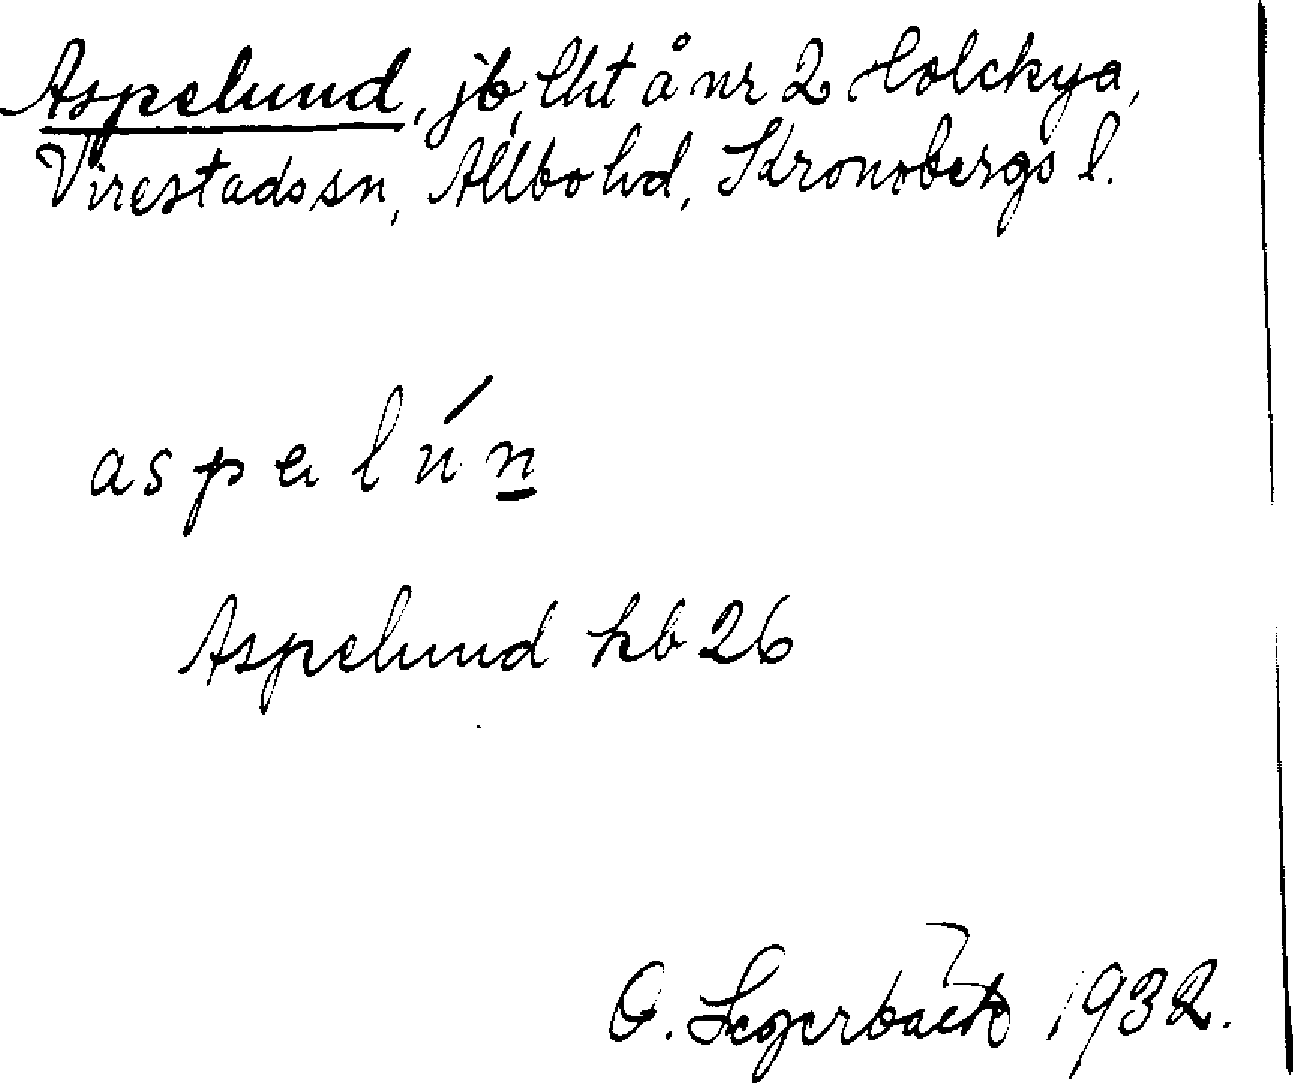 Aspelund, jb, lht å nr 2 Holckya,
Virestads sn, Allbo hd, Kronobergs l.
aspəlún
Aspelund hb 26
O. Segerbäck 1932.